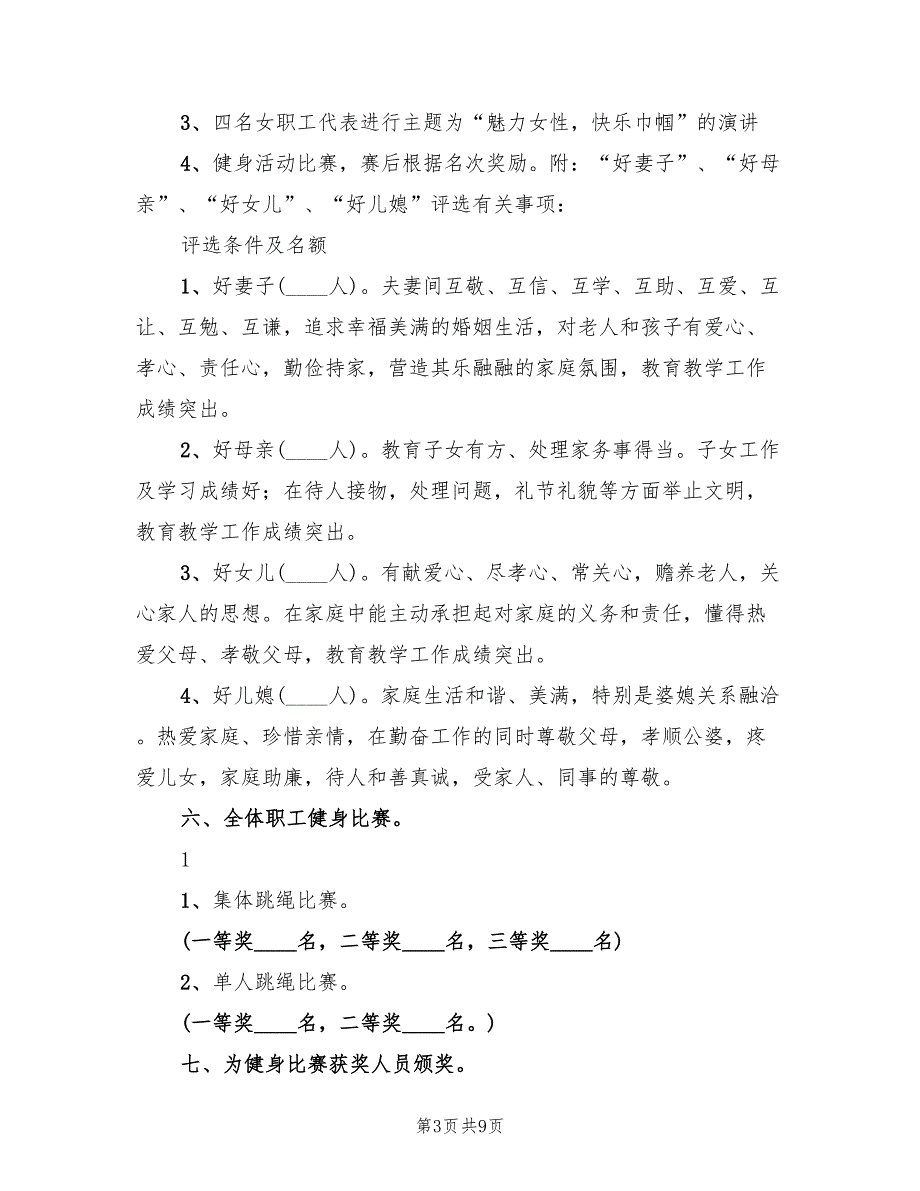 3、四名女职工代表进行主题为“魅力女性，快乐巾帼”的演讲
4、健身活动比赛，赛后根据名次奖励。附：“好妻子”、“好母
亲”、“好女儿”、“好儿媳”评选有关事项：
评选条件及名额
1、好妻子(____人)。夫妻间互敬、互信、互学、互助、互爱、互
让、互勉、互谦，追求幸福美满的婚姻生活，对老人和孩子有爱心、
孝心、责任心，勤俭持家，营造其乐融融的家庭氛围，教育教学工作
成绩突出。
2、好母亲(____人)。教育子女有方、处理家务事得当。子女工作
及学习成绩好；在待人接物，处理问题，礼节礼貌等方面举止文明，
教育教学工作成绩突出。
3、好女儿(____人)。有献爱心、尽孝心、常关心，赡养老人，关
心家人的思想。在家庭中能主动承担起对家庭的义务和责任，懂得热
爱父母、孝敬父母，教育教学工作成绩突出。
4、好儿媳(____人)。家庭生活和谐、美满，特别是婆媳关系融洽
。热爱家庭、珍惜亲情，在勤奋工作的同时尊敬父母，孝顺公婆，疼
爱儿女，家庭助廉，待人和善真诚，受家人、同事的尊敬。
六、全体职工健身比赛。
1
1、集体跳绳比赛。
(一等奖____名，二等奖____名，三等奖____名)
2、单人跳绳比赛。
(一等奖____名，二等奖____名。)
七、为健身比赛获奖人员颁奖。
第3页共9页